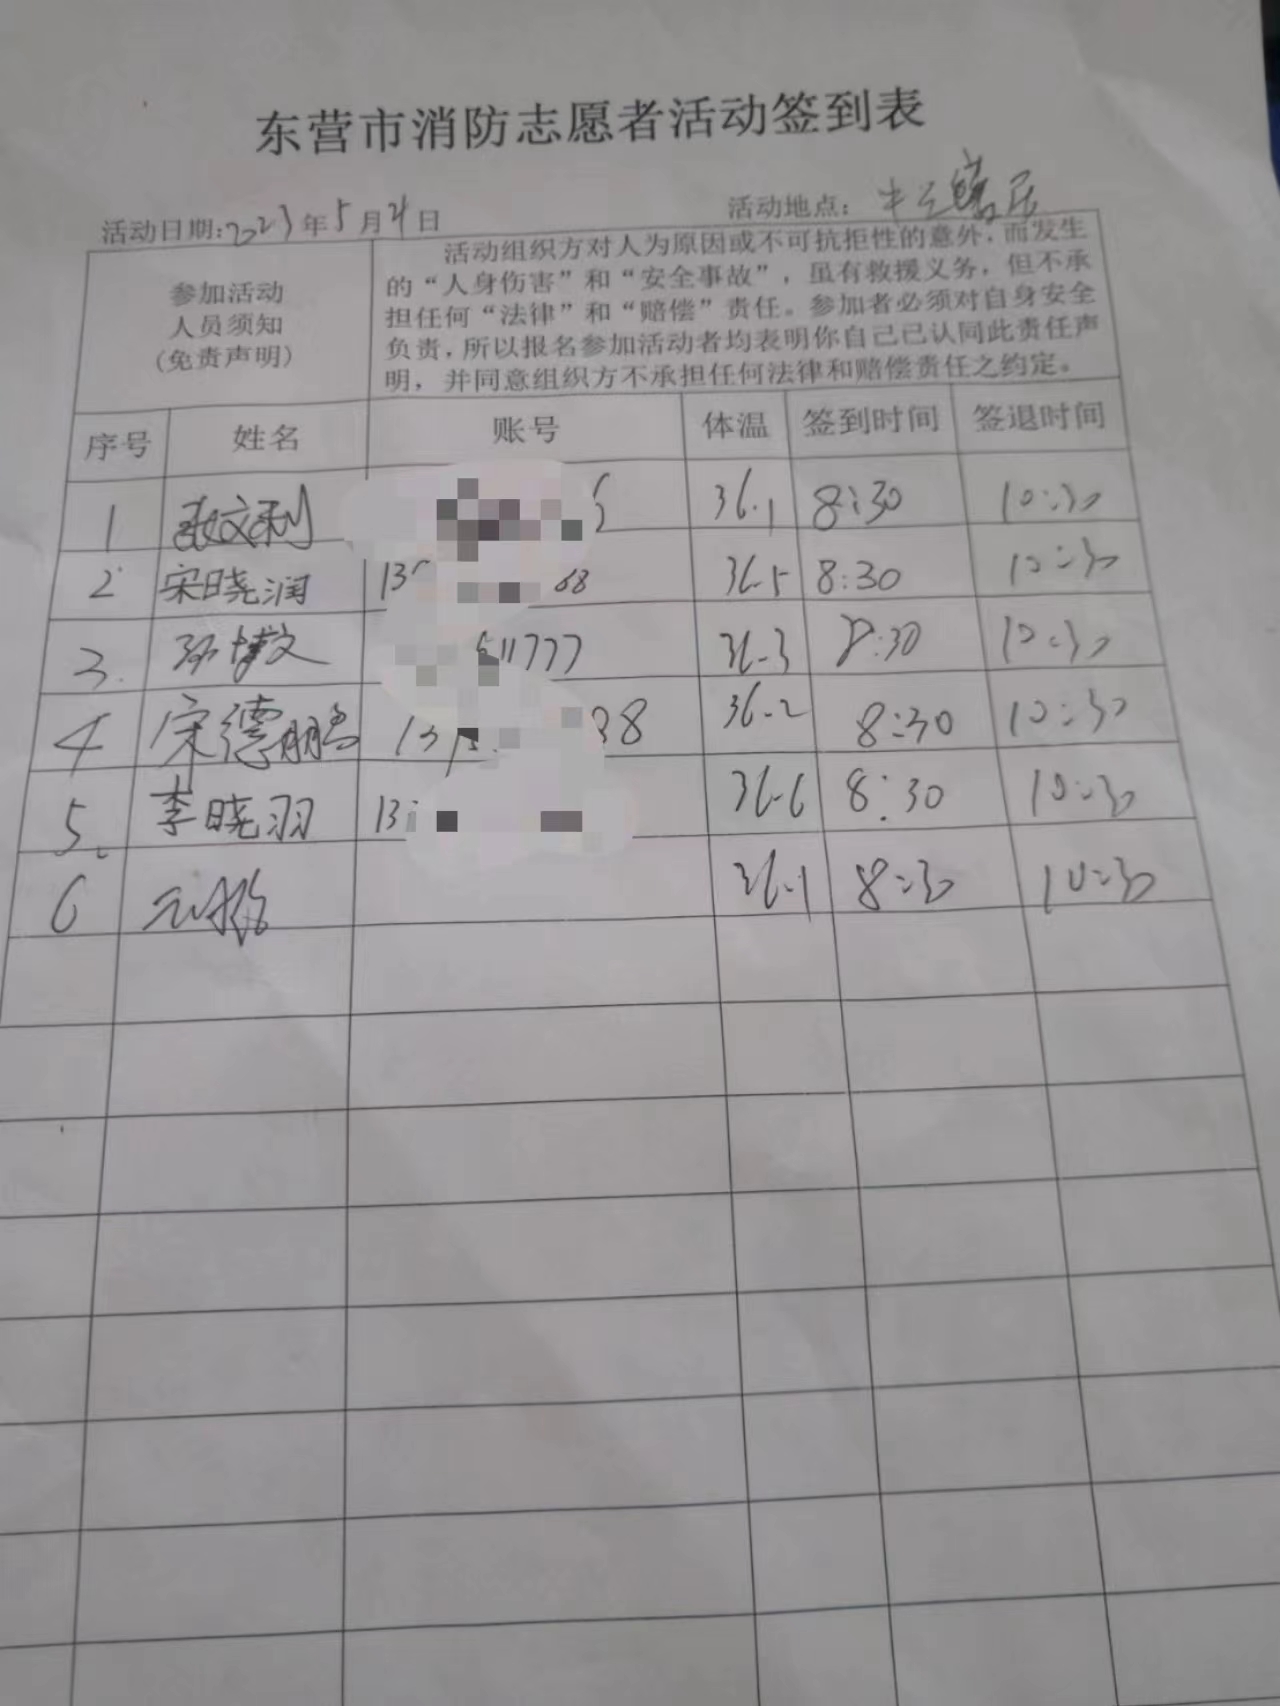 东营市消防志愿者活动签到表
活动日期:2023年5月4日 活动地点:
参加活动
人员须知
(免责声明)
活动组织方对人为原因或不可抗拒性的意外,而发生
的“人身伤害”和“安全事故”,虽有救援义务,但不承
担任何“法律”和“赔偿”责任。参加者必须对自身安全
负责,所以报名参加活动者均表明你自己已认同此责任声
明,并同意组织方不承担任何法律和赔偿责任之约定。
序号 姓名 账号 体温 签到时间 签退时间
1 张文利 36.1 8:30 10:30
2 宋晓润 13 68 36.5 8:30 10:30
3. 孙博文 11777 36.3 8:30 10:30
4 宋德鹏 13 88 36.2 8:30 10:30
5. 李晓羽 13 36.6 8:30 10:30
6 36.1 8:30 10:30